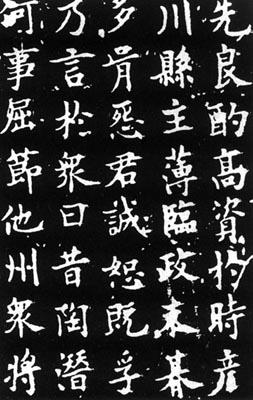 先良酌高資於時産
川縣主薄臨政未朞
多胥怨君誠恕既孚
乃言於衆曰昔陶潛
何事屈節他州衆將